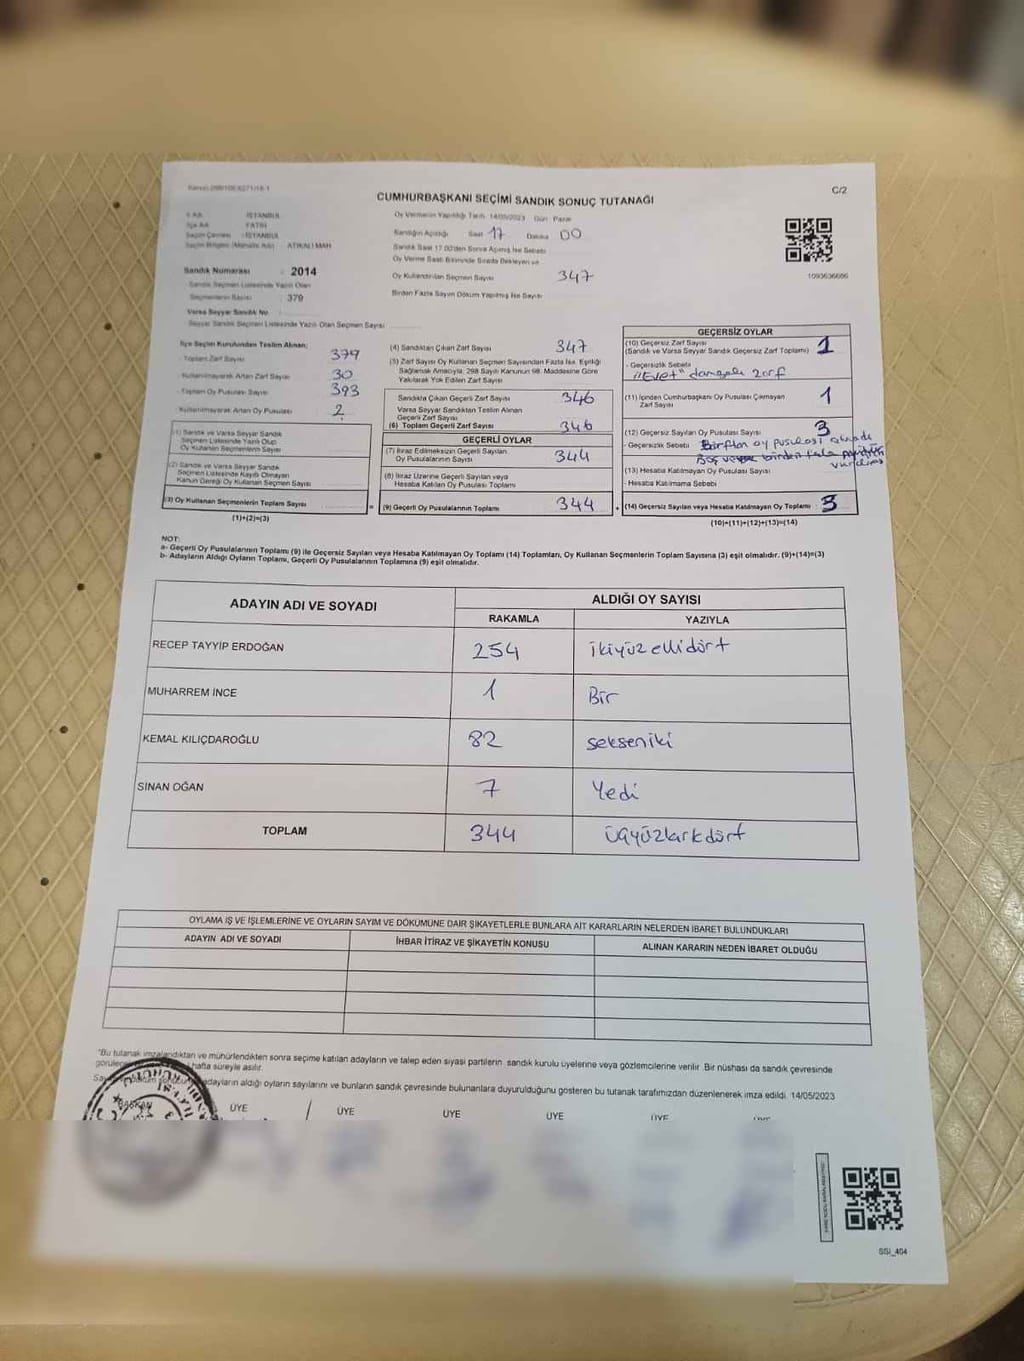 C/2
CUMHURBAŞKANI SEÇİMİ SANDIK SONUÇ TUTANAĞI
İli Adı : İSTANBUL
İlçe Adı : FATİH
Seçim Çevresi : İSTANBUL
Seçim Bölgesi (Mahalle Adı) : ATİKALİ MAH
Sandık Numarası : 2014
Sandık Seçmen Listesinde Yazılı Olan
Seçmenlerin Sayısı : 379
Varsa Seyyar Sandık No
Seyyar Sandık Seçmen Listesinde Yazılı Olan Seçmen Sayısı
Oy Vermenin Yapıldığı Tarih 14/05/2023 Gün Pazar
Sandığın Açıldığı Saat 17 Dakika 00
Sandık Saat 17.00'den Sonra Açılmış İse Sebebi
Oy Verme Saati Bitiminde Sırada Bekleyen ve
Oy Kullandırılan Seçmen Sayısı 347
Birden Fazla Sayım Döküm Yapılmış İse Sayısı
1093636686
İlçe Seçim Kurulundan Teslim Alınan;
- Toplam Zarf Sayısı 379
- Kullanılmayarak Artan Zarf Sayısı 30
- Toplam Oy Pusulası Sayısı 393
- Kullanılmayarak Artan Oy Pusulası 2
(1) Sandık ve Varsa Seyyar Sandık
Seçmen Listesinde Yazılı Olup
Oy Kullanan Seçmenlerin Sayısı
(2) Sandık ve Varsa Seyyar Sandık
Seçmen Listesinde Kayıtlı Olmayan
Kanun Gereği Oy Kullanan Seçmen Sayısı
(3) Oy Kullanan Seçmenlerin Toplam Sayısı =
(1)+(2)=(3)
(4) Sandıktan Çıkan Zarf Sayısı 347
(5) Zarf Sayısı Oy Kullanan Seçmen Sayısından Fazla İse, Eşitliği
Sağlamak Amacıyla, 298 Sayılı Kanunun 98. Maddesine Göre
Yakılarak Yok Edilen Zarf Sayısı
Sandıkta Çıkan Geçerli Zarf Sayısı 346
Varsa Seyyar Sandıktan Teslim Alınan
Geçerli Zarf Sayısı
(6) Toplam Geçerli Zarf Sayısı 346
GEÇERLİ OYLAR
(7) İtiraz Edilmeksizin Geçerli Sayılan
Oy Pusulalarının Sayısı 344
(8) İtiraz Üzerine Geçerli Sayılan veya
Hesaba Katılan Oy Pusulası Toplamı
(9) Geçerli Oy Pusulalarının Toplamı 344 +
GEÇERSİZ OYLAR
(10) Geçersiz Zarf Sayısı
(Sandık ve Varsa Seyyar Sandık Geçersiz Zarf Toplamı) 1
- Geçersizlik Sebebi
"Evet" damgalı zarf
(11) İçinden Cumhurbaşkanı Oy Pusulası Çıkmayan
Zarf Sayısı 1
(12) Geçersiz Sayılan Oy Pusulası Sayısı 3
- Geçersizlik Sebebi oy pusulası
Boş veya birden fazla
(13) Hesaba Katılmayan Oy Pusulası Sayısı
- Hesaba Katılmama Sebebi
(14) Geçersiz Sayılan veya Hesaba Katılmayan Oy Toplamı 3
(10)+(11)+(12)+(13)=(14)
NOT:
a- Geçerli Oy Pusulalarının Toplamı (9) ile Geçersiz Sayılan veya Hesaba Katılmayan Oy Toplamı (14) Toplamları, Oy Kullanan Seçmenlerin Toplam Sayısına (3) eşit olmalıdır. (9)+(14)=(3)
b- Adayların Aldığı Oyların Toplamı, Geçerli Oy Pusulalarının Toplamına (9) eşit olmalıdır.
ADAYIN ADI VE SOYADI ALDIĞI OY SAYISI
RAKAMLA YAZIYLA
RECEP TAYYİP ERDOĞAN 254 ikiyüzellidört
MUHARREM İNCE 1 Bir
KEMAL KILIÇDAROĞLU 82 sekseniki
SİNAN OĞAN 7 Yedi
TOPLAM 344 üçyüzkırkdört
OYLAMA İŞ VE İŞLEMLERİNE VE OYLARIN SAYIM VE DÖKÜMÜNE DAİR ŞİKAYETLERLE BUNLARA AİT KARARLARIN NELERDEN İBARET BULUNDUKLARI
ADAYIN ADI VE SOYADI İHBAR İTİRAZ VE ŞİKAYETİN KONUSU ALINAN KARARIN NEDEN İBARET OLDUĞU
"Bu tutanak imzalandıktan ve mühürlendikten sonra seçime katılan adayların ve talep eden siyasi partilerin sandık kurulu üyelerine veya gözlemcilerine verilir. Bir nüshası da sandık çevresinde
hafta süreyle asılır.
adayların aldığı oyların sayılarını ve bunların sandık çevresinde bulunanlara duyurulduğunu gösteren bu tutanak tarafımızdan düzenlenerek imza edildi. 14/05/2023
BAŞKAN ÜYE ÜYE ÜYE ÜYE ÜYE
SSİ_404